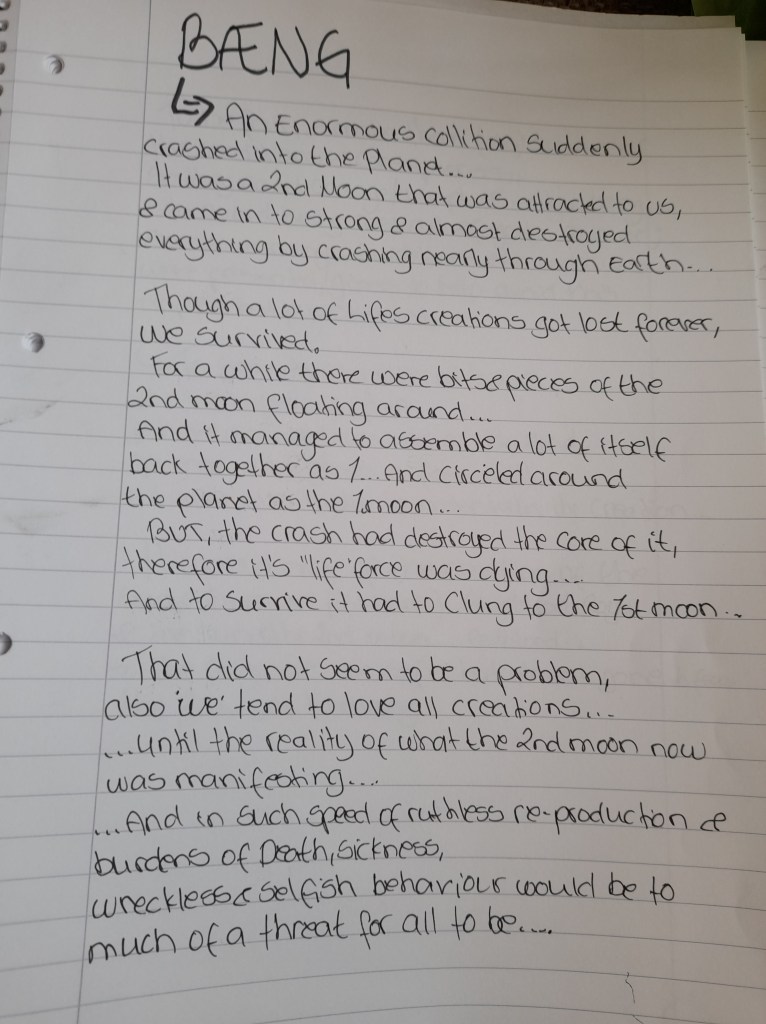 BÆNG
↳ An Enormous collition suddenly
crashed into the planet...
It was a 2nd Moon that was attracted to us,
& came in to strong & almost destroyed
everything by crashing nearly through Earth....
Though a lot of Lifes creations got lost forever,
we survived.
For a while there were bits & pieces of the
2nd moon floating around...
And it managed to assemble a lot of itself
back together as 1... And circeled around
the planet as the 1.moon...
But, the crash had destroyed the core of it,
therefore it's "life" force was dying....
And to survive it had to Clung to the 1st moon...
That did not seem to be a problem,
also 'we' tend to love all creations....
....until the reality of what the 2nd moon now
was manifesting....
...And in such speed of ruthless re-production &
burdens of Death, sickness,
wreckless & selfish behaviour would be to
much of a threat for all to be.....